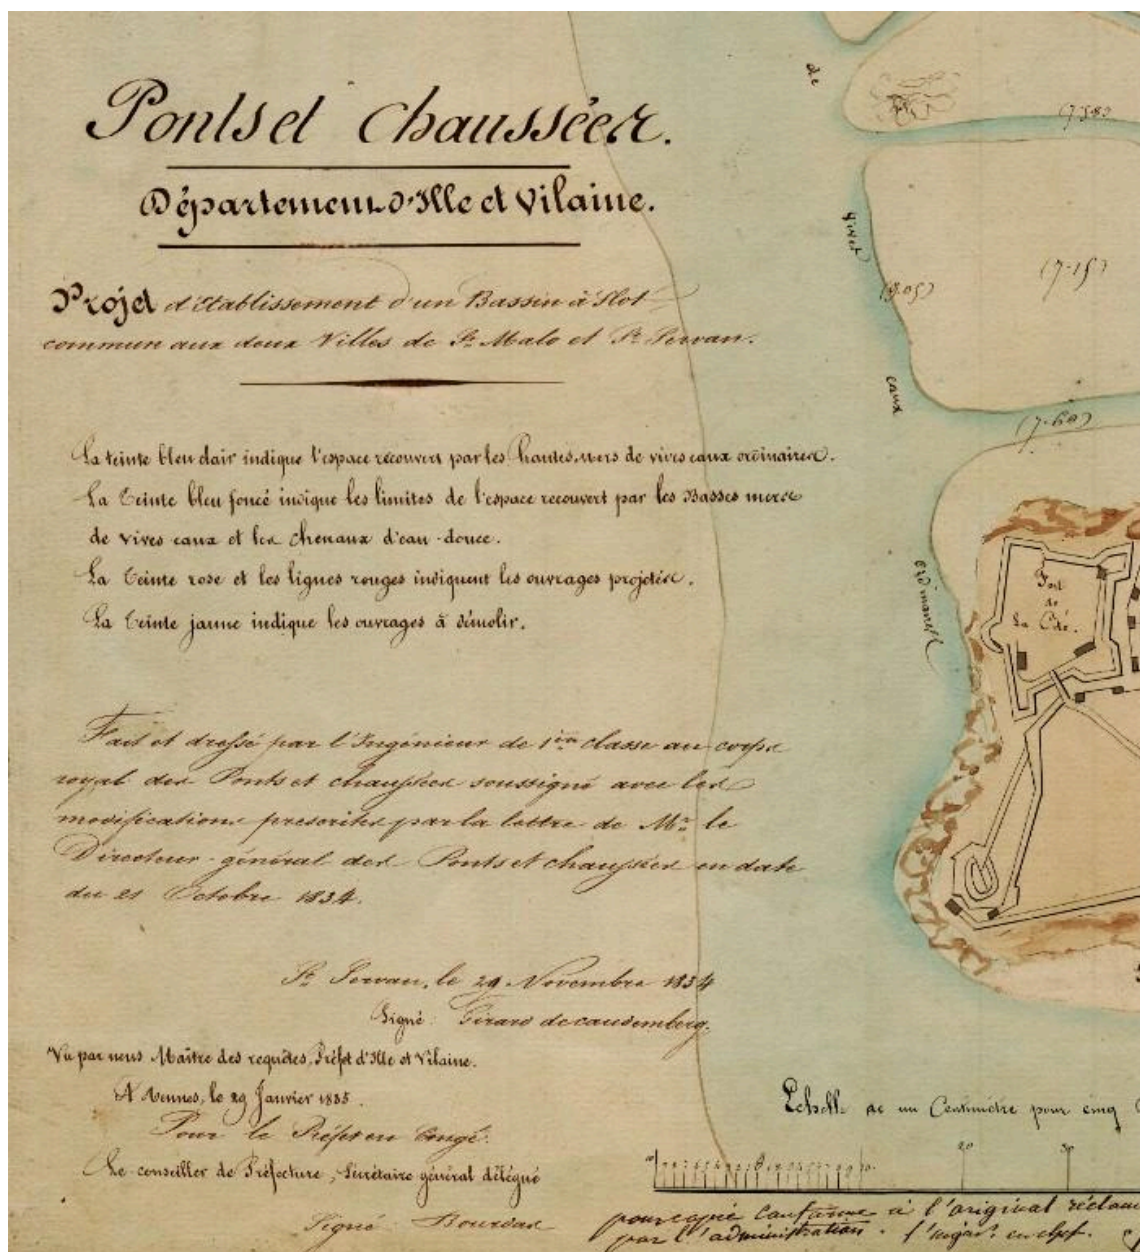 Ponts et chaussées.
Département d'Ille et Vilaine.
Projet d'Etablissement d'un Bassin à Flot
commun aux deux Villes de St. Malo et St. Servan.
La teinte bleu clair indique l'espace recouvert par les hautes mers de vives eaux ordinaires.
La Teinte bleu foncé indique les limites de l'espace recouvert par les Basses mers
de vives eaux et les chenaux d'eau-douce.
La Teinte rose et les lignes rouges indiquent les ouvrages projetés.
La Teinte jaune indique les ouvrages à démolir.
Fait et dressé par l'Ingénieur de 1ère classe au corps
royal des Ponts et chaussées soussigné avec les
modifications prescrites par la lettre de Mr. le
Directeur-général des Ponts et chaussées en date
du 21 Octobre 1834.
St. Servan, le 29 Novembre 1834
Signé: Girard de caudemberg.
Vu par nous Maître des requêtes, Préfet d'Ille et Vilaine.
A Rennes, le 29 Janvier 1835.
Pour le Préfet en Congé.
Le conseiller de Préfecture, Secrétaire général délégué
Signé: Bourdas
de
vives
eaux
ordinaires
(7.58)
(7.15)
(9.05)
(7.60)
Fort
de
La Cité.
Echelle de un Centimètre pour cinq
20
30
pour copie conforme à l'original réclamé
par l'administration. l'ingér. en chef.